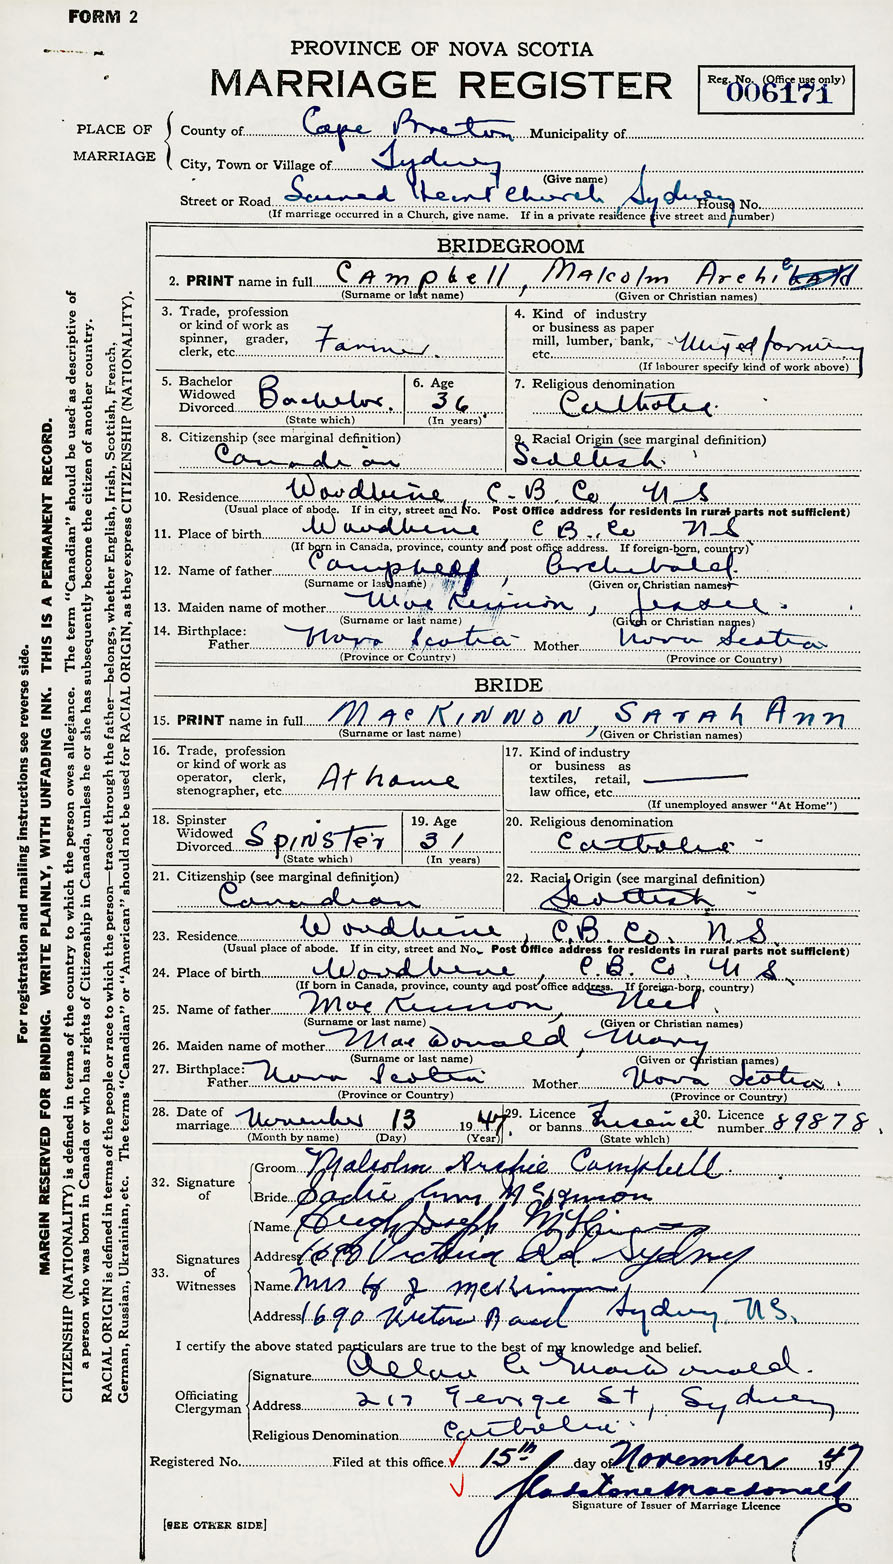 FORM 2
PROVINCE OF NOVA SCOTIA
MARRIAGE REGISTER
Reg. No. (Office use only)
006171
PLACE OF MARRIAGE
County of Cape Breton Municipality of
City, Town or Village of Sydney
(Give name)
Street or Road Sacred Heart Church, Sydney House No.
(If marriage occurred in a Church, give name. If in a private residence give street and number)
BRIDEGROOM
2. PRINT name in full Campbell, Malcolm Archie
(Surname or last name) (Given or Christian names)
3. Trade, profession or kind of work as spinner, grader, clerk, etc. Farmer.
4. Kind of industry or business as paper mill, lumber, bank, etc. Mixed farming
(If labourer specify kind of work above)
5. Bachelor Widowed Divorced Bachelor.
(State which)
6. Age 36
(In years)
7. Religious denomination
Catholic.
8. Citizenship (see marginal definition)
Canadian
9. Racial Origin (see marginal definition)
Scottish
10. Residence Woodbine, C-B. Co, N S
(Usual place of abode. If in city, street and No. Post Office address for residents in rural parts not sufficient)
11. Place of birth Woodbine C B. Co N S
(If born in Canada, province, county and post office address. If foreign-born, country)
12. Name of father Campbell, Archibald.
(Surname or last name) (Given or Christian names)
13. Maiden name of mother MacKinnon, Jessie.
(Surname or last name) (Given or Christian names)
14. Birthplace: Father Nova Scotia Mother Nova Scotia
(Province or Country) (Province or Country)
BRIDE
15. PRINT name in full MacKINNON, SARAh Ann
(Surname or last name) (Given or Christian names)
16. Trade, profession or kind of work as operator, clerk, stenographer, etc. At home
17. Kind of industry or business as textiles, retail, law office, etc.
(If unemployed answer "At Home")
18. Spinster Widowed Divorced Spinster
(State which)
19. Age 31
(In years)
20. Religious denomination
Catholic -
21. Citizenship (see marginal definition)
Canadian
22. Racial Origin (see marginal definition)
Scottish
23. Residence Woodbine, C.B. Co. N.S.
(Usual place of abode. If in city, street and No. Post Office address for residents in rural parts not sufficient)
24. Place of birth Woodbine, C.B. Co. N S.
(If born in Canada, province, county and post office address. If foreign-born, country)
25. Name of father MacKinnon, Neil.
(Surname or last name) (Given or Christian names)
26. Maiden name of mother MacDonald, Mary
(Surname or last name) (Given or Christian names)
27. Birthplace: Father Nova Scotia Mother Nova Scotia.
(Province or Country) (Province or Country)
28. Date of marriage November 13 1947.
(Month by name) (Day) (Year)
29. Licence or banns
(State which)
30. Licence number 89878.
32. Signature of
Groom Malcolm Archie Campbell.
Bride Sadie Ann McKinnon
33. Signatures of Witnesses
Name Hugh Joseph McKinnon
Address 1690 Victoria Rd Sydney
Name Mrs H J McKinnon
Address 1690 Victoria Road Sydney, N.S.
I certify the above stated particulars are true to the best of my knowledge and belief.
Officiating Clergyman
Signature Allan MacDonald.
Address 217 George St, Sydney
Religious Denomination Catholic.
Registered No. Filed at this office 15th day of November 1947
Gladstone Macdonald
Signature of Issuer of Marriage Licence
[SEE OTHER SIDE]
For registration and mailing instructions see reverse side.
MARGIN RESERVED FOR BINDING. WRITE PLAINLY, WITH UNFADING INK. THIS IS A PERMANENT RECORD.
CITIZENSHIP (NATIONALITY) is defined in terms of the country to which the person owes allegiance. The term "Canadian" should be used as descriptive of
a person who was born in Canada or who has rights of Citizenship in Canada, unless he or she has subsequently become the citizen of another country.
RACIAL ORIGIN is defined in terms of the people or race to which the person—traced through the father—belongs, whether English, Irish, Scottish, French,
German, Russian, Ukrainian, etc. The terms "Canadian" or "American" should not be used for RACIAL ORIGIN, as they express CITIZENSHIP (NATIONALITY).